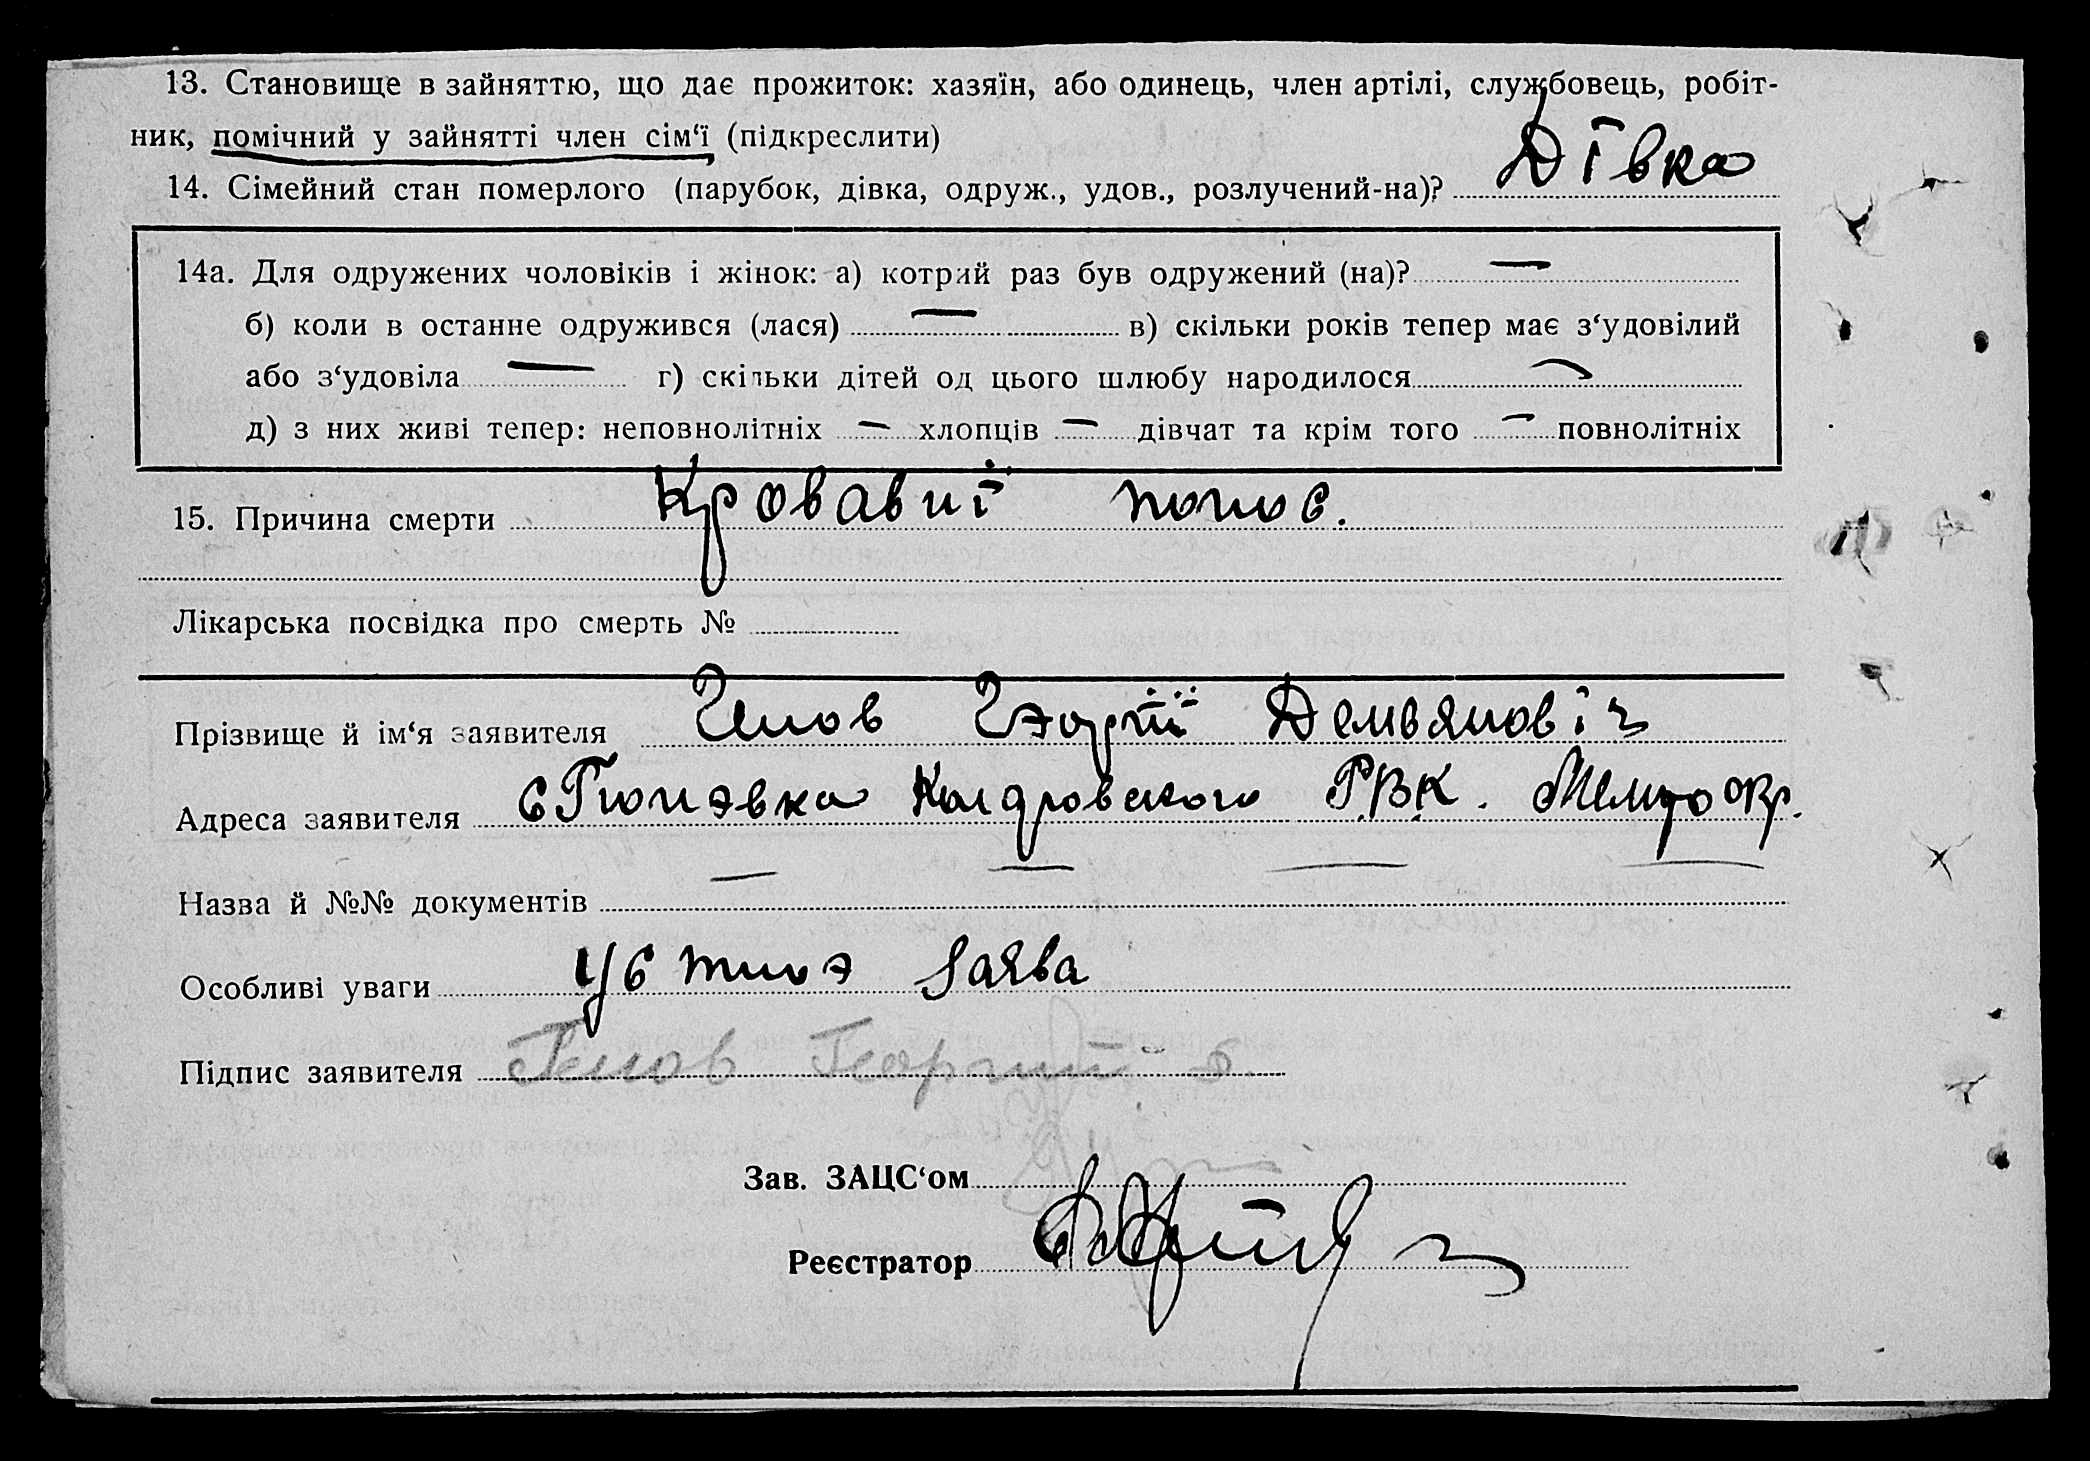 13. Становище в зайняттю, що дає прожиток: хазяїн, або одинець, член артілі, службовець, робіт-
ник, помічний у зайнятті член сім‘ї (підкреслити)
14. Сімейний стан померлого (парубок, дівка, одруж., удов., розлучений-на)? Дівка
14а. Для одружених чоловіків і жінок: а) котрий раз був одружений (на)? —
б) коли в останнє одружився (лася) — в) скільки років тепер має з‘удовілий
або з‘удовіла — г) скільки дітей од цього шлюбу народилося —
д) з них живі тепер: неповнолітніх — хлопців — дівчат та крім того — повнолітніх
15. Причина смерти Кровавиї понос.
Лікарська посвідка про смерть №
Прізвище й ім‘я заявителя Генов Георгій Демьяновіч
Адреса заявителя с Гюнэвка РВК.
Назва й №№ документів — — — —
Особливі уваги Устна заява
Підпис заявителя Генов Георгий Д
Зав. ЗАЦС‘ом
Реєстратор